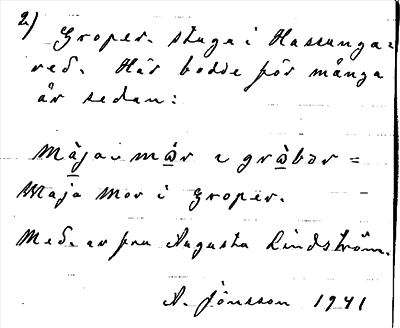 2)
Groper. stuga i Hassunga=
red. Här bodde för många
år sedan:
Mäja mor i gräbar =
Maja Mor i Groper.
Med. av fru Augusta Lindström.
A. Jönsson 1941